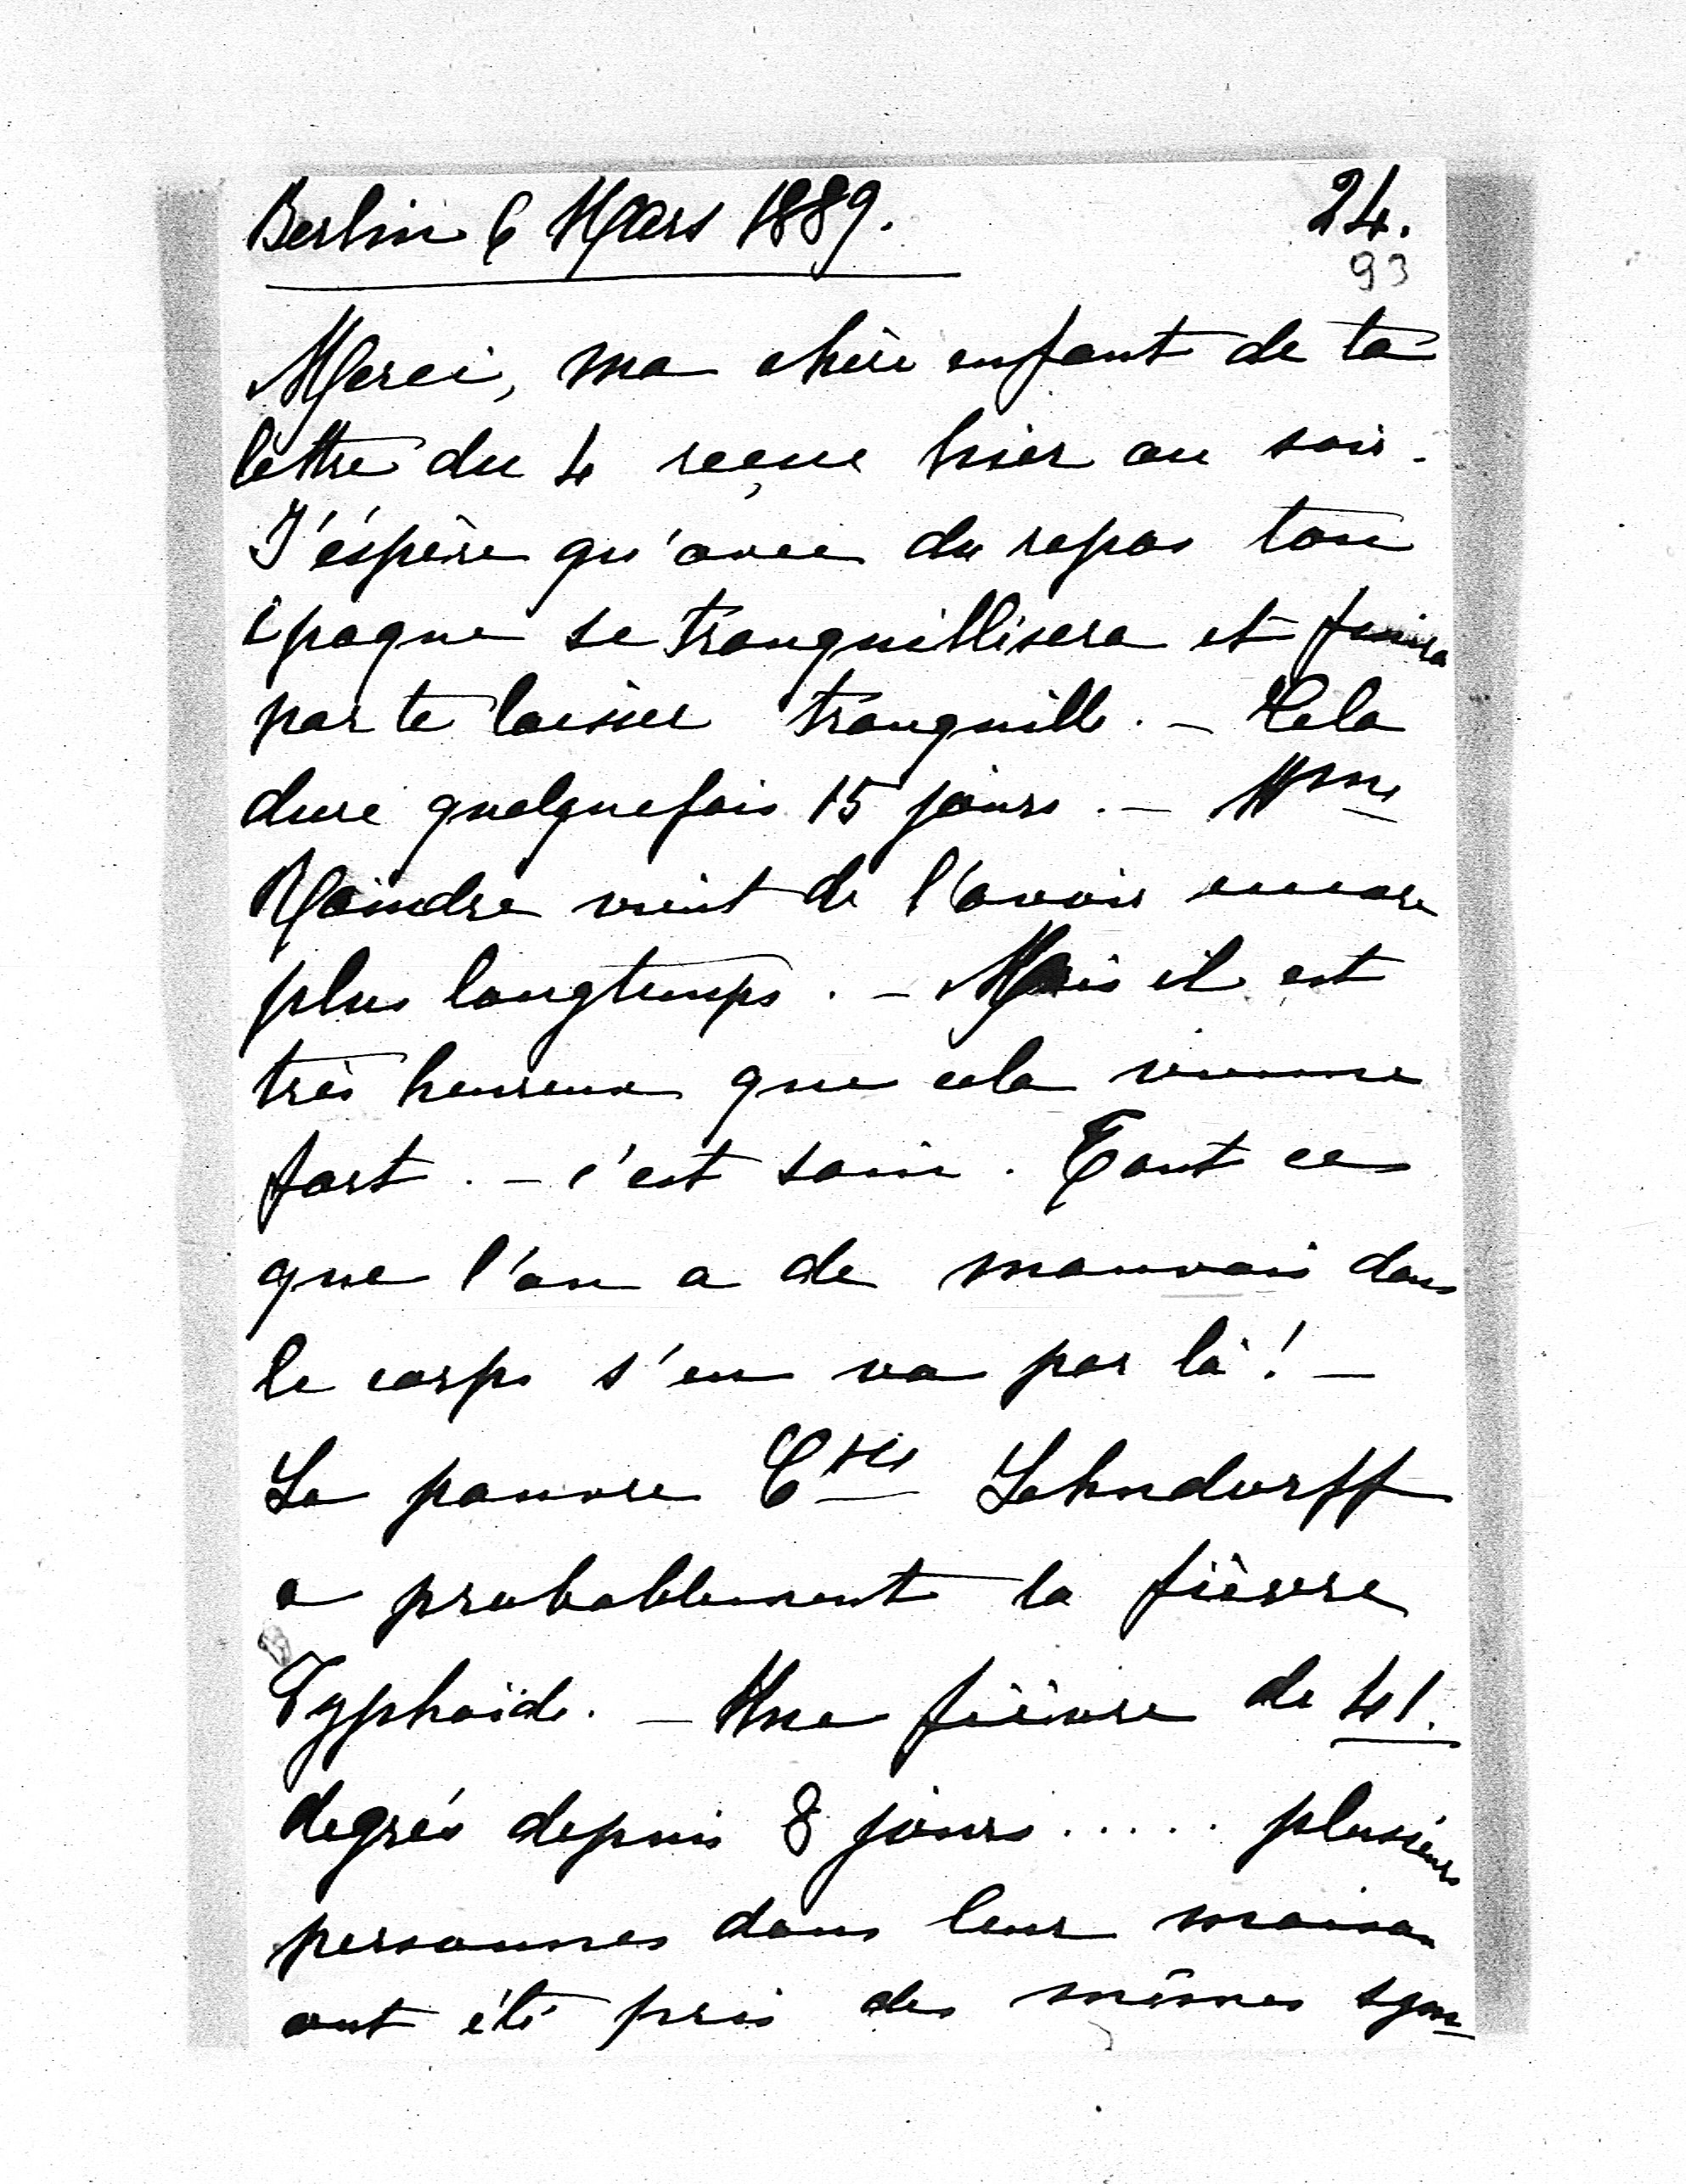 Berlin 6 Mars 1889. 24.
93
Merci, ma chère enfant de ta
lettre du 4 reçue hier au soir.
J'éspère qu'avec du repos ton
époque se tranquillisera et finira
par te laisser tranquille. – Cela
dure quelquefois 15 jours. – Mme
Moindre vient de l'avoir encore
plus longtemps. – Mais il est
très heureux que cela vienne
fort. – c'est sain. Tout ce
que l'on a de mauvais dans
le corps s'en va par là! –
La pauvre Ctsse Lehndorff
a probablement la fièvre
Typhoïde. – Une fièvre de 41.
degrés depuis 8 jours ..... plusieurs
personnes dans leur maison
ont été pris des mêmes sym-